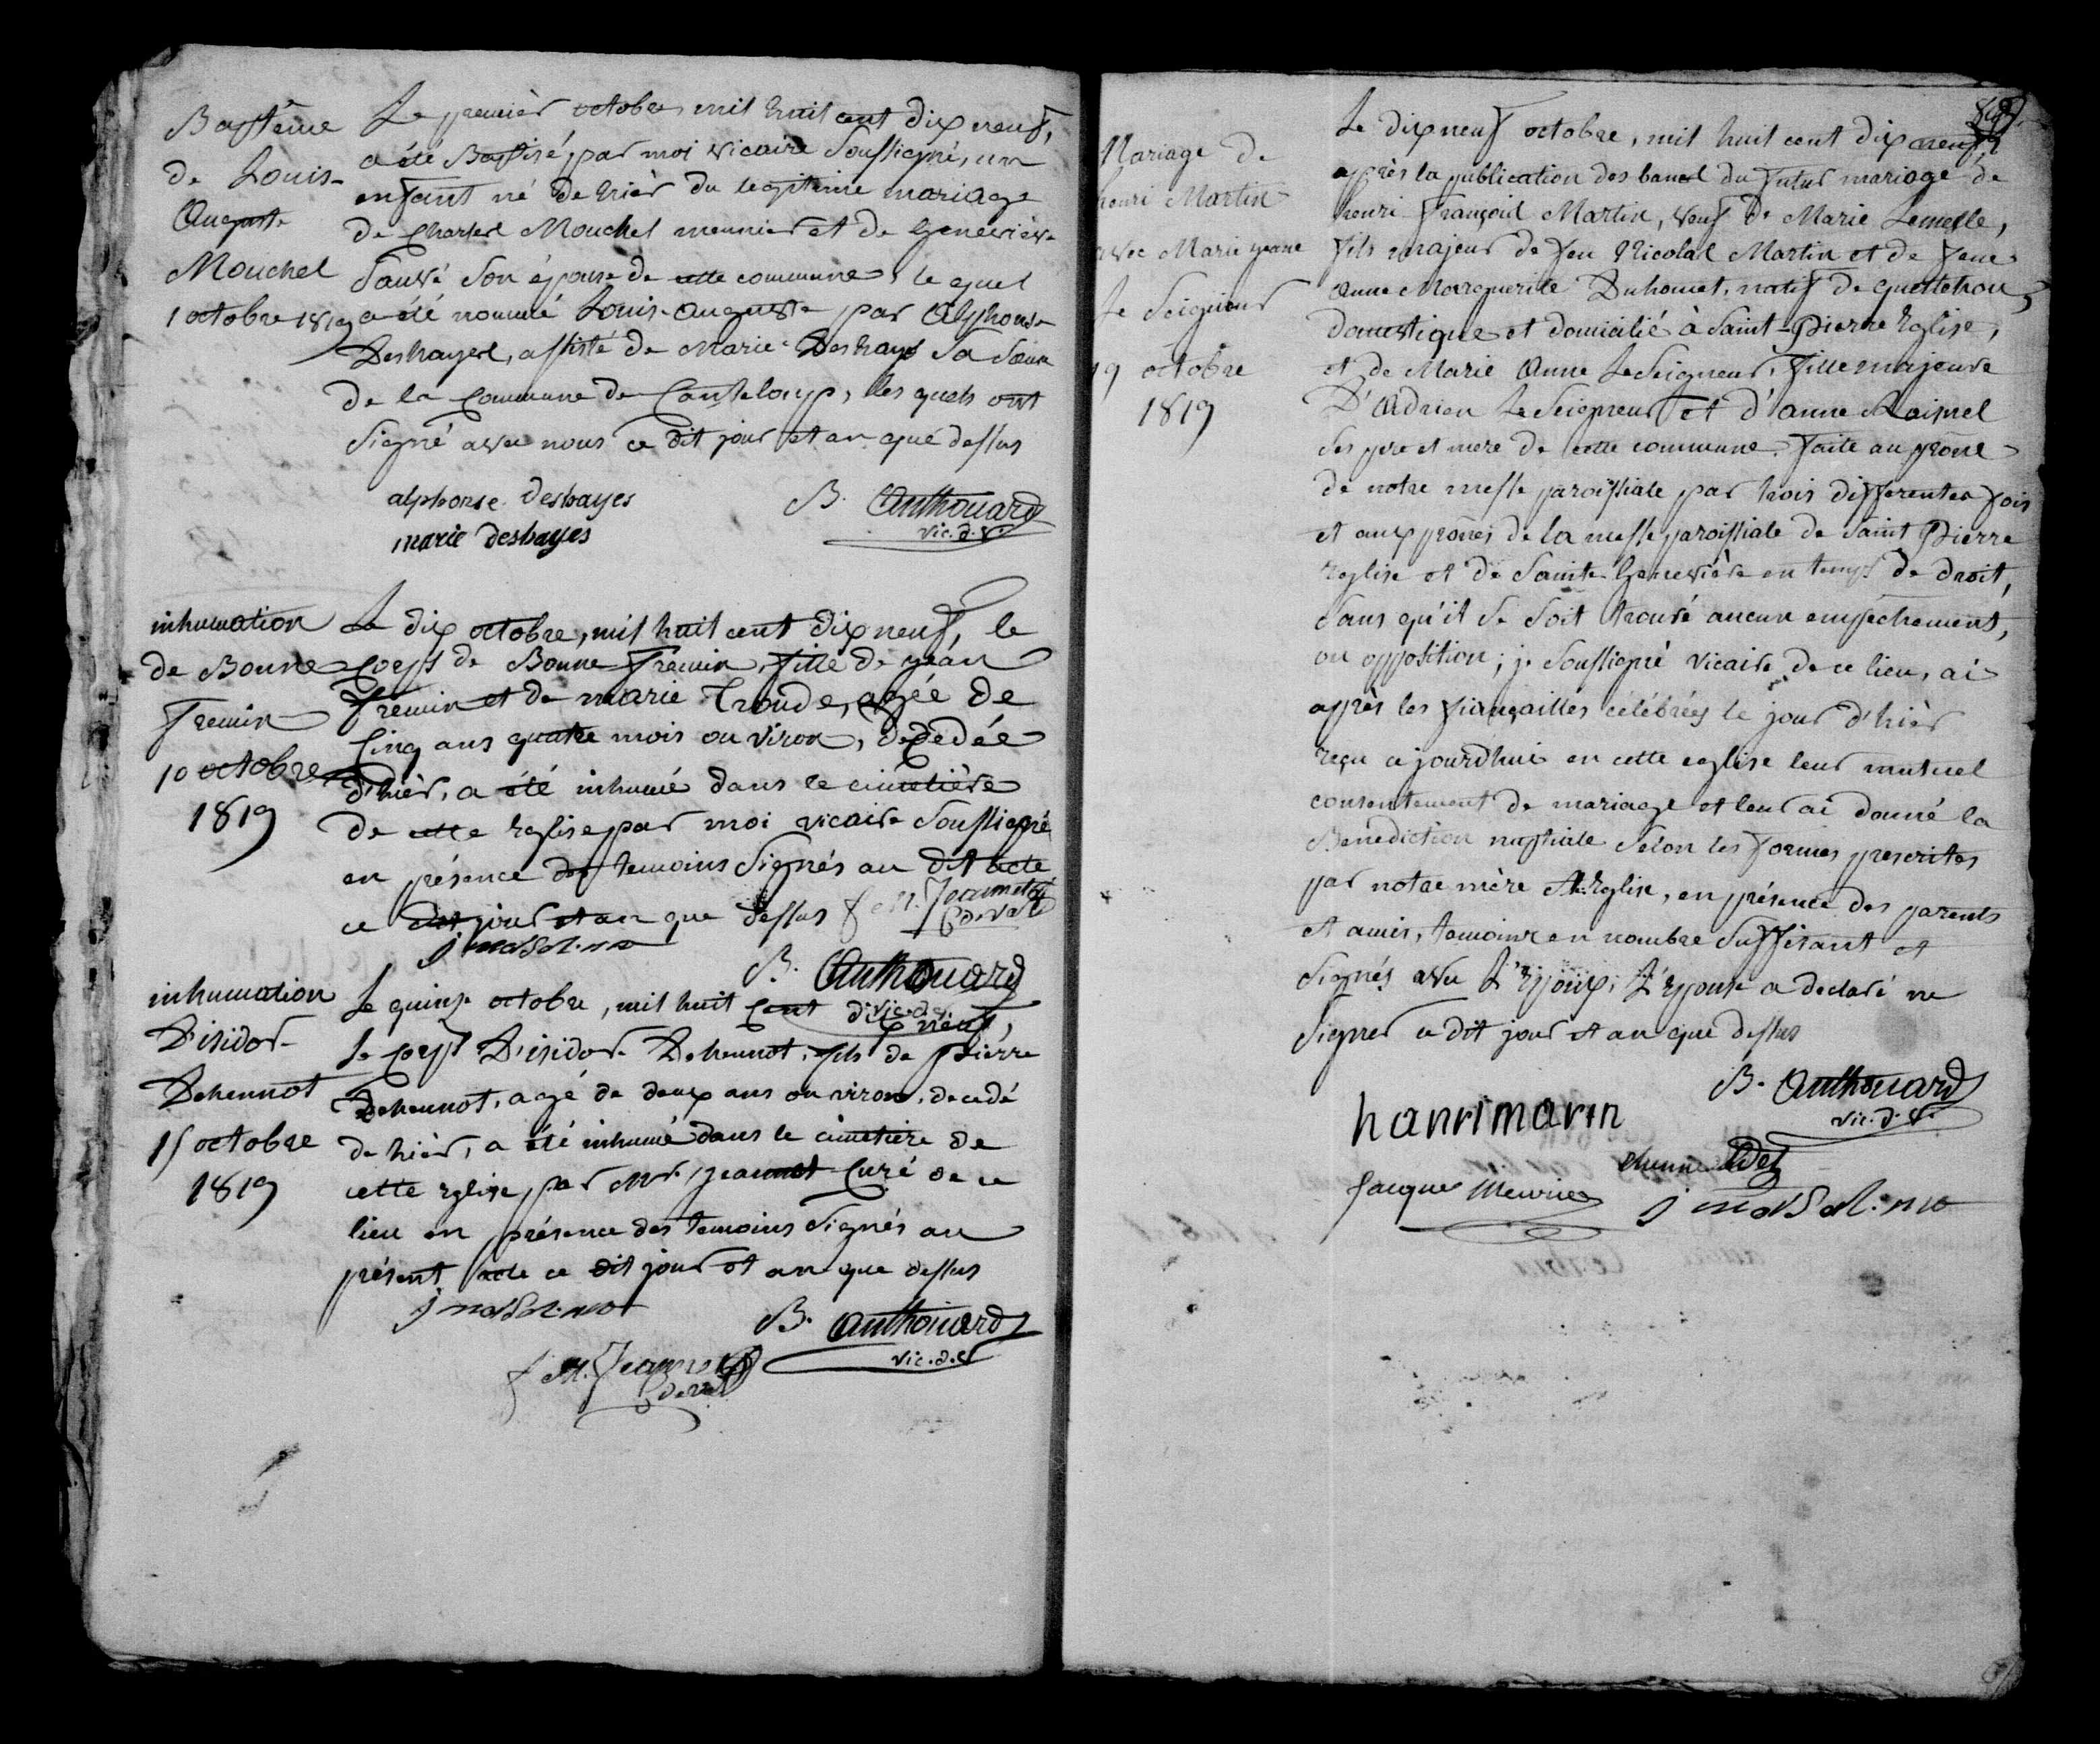 Baptême
de Louis-
Auguste
Mouchel
1 octobre 1819
Le premièr octobre, mil huil cent dix neuf,
a été Baptisé par moi vicaire Soussigné, un
enfant né de hièr du legitime mariage
de Charles Mouchel meunier et de Geneviève
Sauvé Son épouse de cette commune, le quel
a été nommé Louis-Auguste par Alphonse
Deshayes, assisté de Marie Deshayes Sa Sœur
de la Commune de Canteloup, les quels ont
Signé avec nous ce dit jour et an que dessus
alphonse deshayes
marie deshayes
B. Anthouard
vic. d. v.
inhumation
de Bonne
Fremin
10 octobre
1819
Le dix octobre, mil huit cent dix neuf, le
Corps de Bonne Fremin, fille de jean
Fremin et de marie Troude, agée de
Cinq ans quatre mois ou viron, décedée
d'hièr, a été inhumé dans le cimetière
de cette Eglise par moi vicaire Soussigné
en présence des temoins Signés au dit acte
ce dit jour et an que dessus
B. Anthouard
vic. d.
inhumation
D'isidor
Dehennot
15 octobre
1819
Le quinze octobre, mil huit Cent dix neuf,
Le corps D'isidor Dehennot, fils de Pierre
Dehennot, agé de deux ans ou viron, decedé
de hièr, a été inhumé dans le cimetiere de
cette Eglise, par Mr. Jeannet Curé de ce
lieu en présence des temoins Signés au
présent acte ce dit jour et an que dessus
B. Anthouard
vic. d. v
Mariage de
henri Martin
avec Marie jeanne
Le Seigneur
19 octobre
1819
Le dix neuf octobre, mil huit cent dix neuf,
après la publication des bancs du futur mariage de
henri François Martin, veuf de Marie Lemesle,
fils majeur de feu Nicolas Martin et de feue
Anne Marguerite Duhomet, natif de quettehou,
domestique et domicilié à Saint-Pierre Eglise,
et de Marie Anne LeSeigneur, fille majeure
D'Adrien LeSeigneur et d'anne Roisnel
Ses père et mere de cette commune. faite au prône
de notre messe paroissiale par trois differentes fois
et aux prônes de la messe paroissiale de Saint Pierre
Eglise et de Sainte-Geneviève en temps de droit,
Sans qu'il Se Soit trouvé aucun empechement,
ou opposition; je Soussigné vicaire de ce lieu, ai
après les fiançailles célébrées le jour d'hièr
reçu ajourdhui en cette eglise leur mutuel
consentement de mariage et leur ai donné la
Bénédiction nuptiale Selon les formes prescrites
par notre mère Ste. Eglise, en présence des parents
et amis, temoins en nombre Suffisant et
Signés avec L'Epoux; L'Epouse a declaré ne
Signer ce dit jour et an que dessus
B. Anthouard
vic. d. v.
hanrimarin
Jacques Meurice